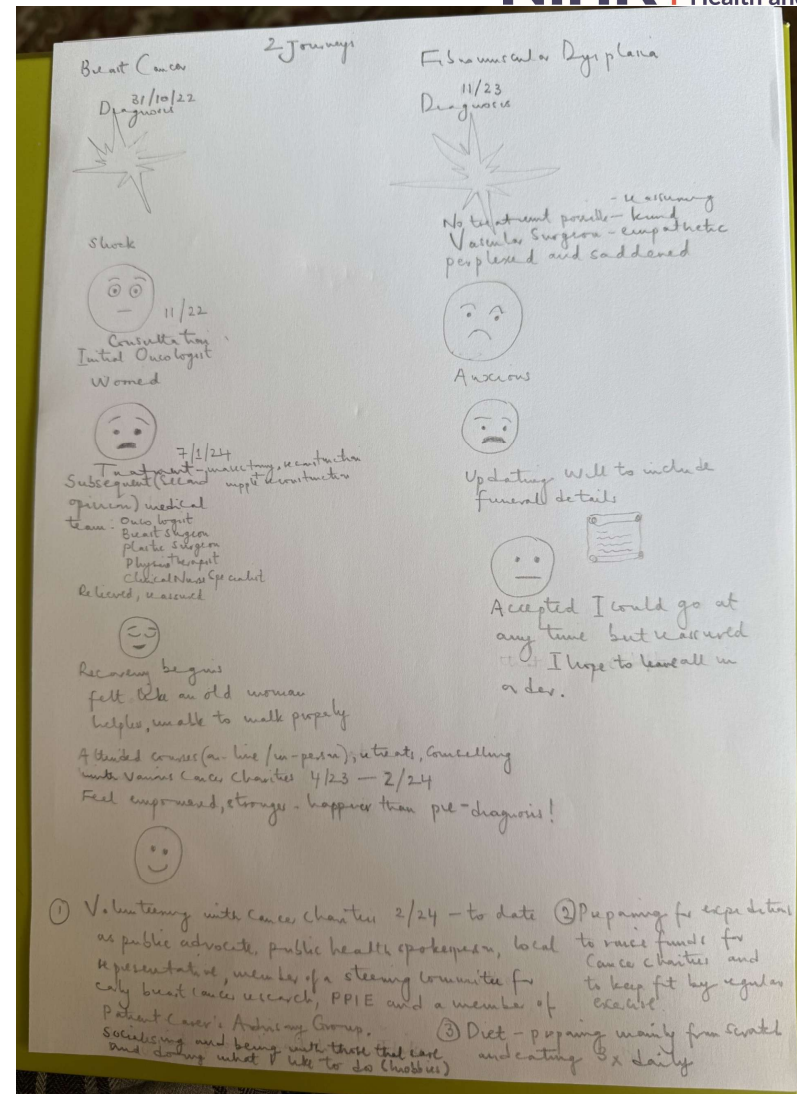 2 Journeys
Breast Cancer
31/10/22
Diagnosis
Shock
11/22
Consultation
Initial Oncologist
Worried
7/1/24
Treatment - mastectomy, reconstruction
Subsequent (second
opinion) medical
team: Oncologist
Breast Surgeon
Plastic Surgeon
Physiotherapist
Clinical Nurse Specialist
Relieved, reassured
Recovery begins
felt like an old woman
helpless, unable to walk properly
Attended courses (on-line/in-person), retreats, counselling
with various Cancer Charities 4/23 — 2/24
Feel empowered, stronger - happier than pre-diagnosis!
Fibromuscular Dysplasia
11/23
Diagnosis
- reassuring
No treatment possible - kind
Vascular Surgeon - empathetic
perplexed and saddened
Anxious
Updating Will to include
funeral details
Accepted I could go at
any time but reassured
I hope to leave all in
order.
① Volunteering with Cancer Charities 2/24 - to date
as public advocate, public health spokesperson, local
representative, member of a steering committee for
early breast cancer research, PPIE and a member of
Patient Carer's Advisory Group.
socialising and being with those that care
and doing what I like to do (hobbies)
② Preparing for expeditions
to raise funds for
Cancer charities and
to keep fit by regular
exercise.
③ Diet - preparing mainly from scratch
and eating 3x daily